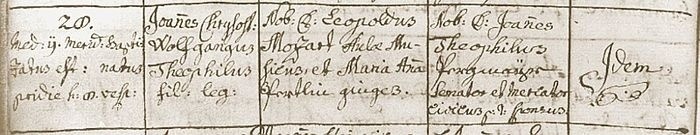 28.
med: ij. merid. bapti
zatus est: natus
pridie h: 8. vesp:
Joañes Chrysost:
Wolfgangus
Theophilus
fil: leg:
Nob: D: Leopoldus
Mozart Aulæ Mu-
sicus, et Maria Ana
Pertlin giuges.
Nob: D: Joañes
Theophilus
Pergmayr
Senator et Mercator
civicus p: t: sponsus
Idem